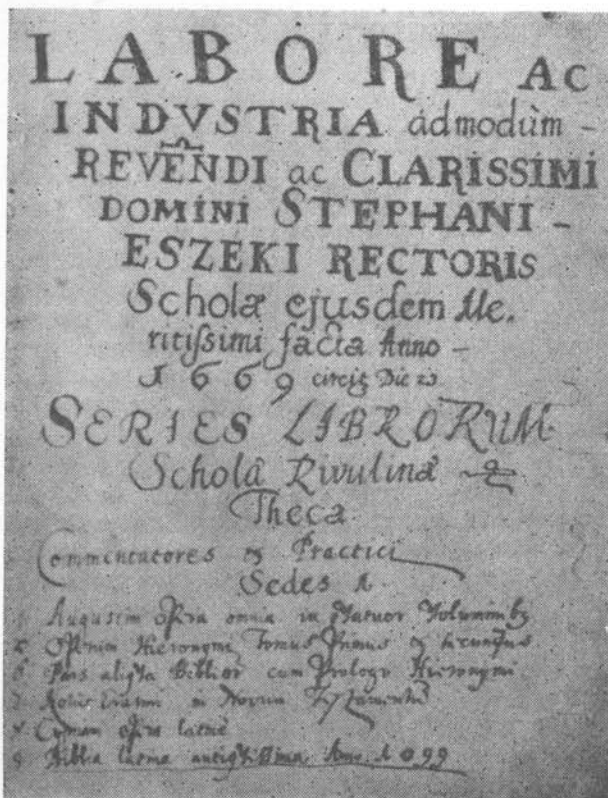 LABORE AC
INDVSTRIA admodùm -
REVEÑDI ac CLARISSIMI
DOMINI STEPHANI -
ESZEKI RECTORIS
Scholæ ejusdem Me.
ritissimi facta Anno -
1669 circit Die 23
SERIES LIBRORUM
Scholâ Rivulinâ
Theca
Commentatores & Practici
Sedes 1.
Augustini opera omnia in Quatuor
Operum Hieronymi Tomus Primus &
Pars aliqta Biblior cum Prologo Hieronymi
Erasmi in Novum
opera latine
Biblia latina antiqissima Anno 1099